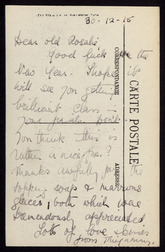 30-12-15
Dear old Rosalie
Good luck in the
New Year. I hope it
will see you getting
brilliant class —
you
think this is
rather a nice ?
thanks awfully for the
topping soap & marrons
glacés, both which were
tremendously appreciated
Lots of love & kisses
from
CARTE POSTALE
CORRESPONDANCE
ADRESSE